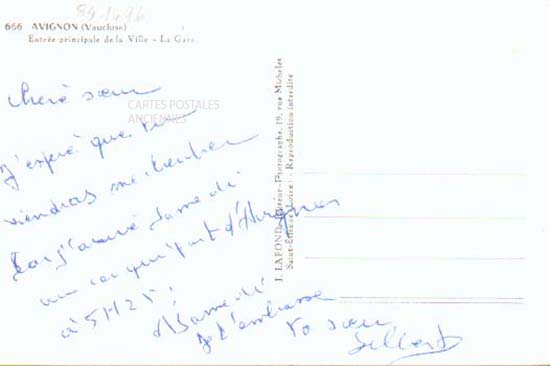 666 AVIGNON (Vaucluse)
Entrée principale de la Ville - La Gare
CARTES POSTALES
ANCIENNES
Cheré sœur
J'espère que tu
viendras me chercher
car j'arrive Samedi
au car qui part d'Avignon
à 5H25!
A Samedi
Je t'embrasse
ta sœur
J. LAFOND, Éditeur-Photographe, 19, rue Michelet
Saint-Étienne (Loire) - Reproduction interdite